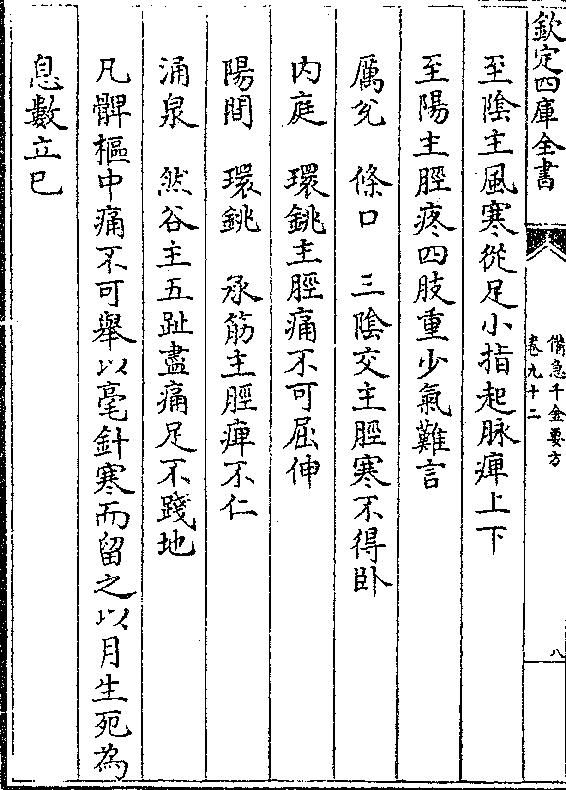 欽定四庫全書
備急千金要方
卷九十二
八
至陰主風寒從足小指起脉痺上下
至陽主脛疼四肢重少氣難言
厲兊　條口　三陰交主脛寒不得卧
内庭　環銚主脛痛不可屈伸
陽間　環銚　承筋主脛痺不仁
涌泉　然谷主五趾盡痛足不踐地
凡髀樞中痛不可舉以毫針寒而留之以月生死為
息數立已